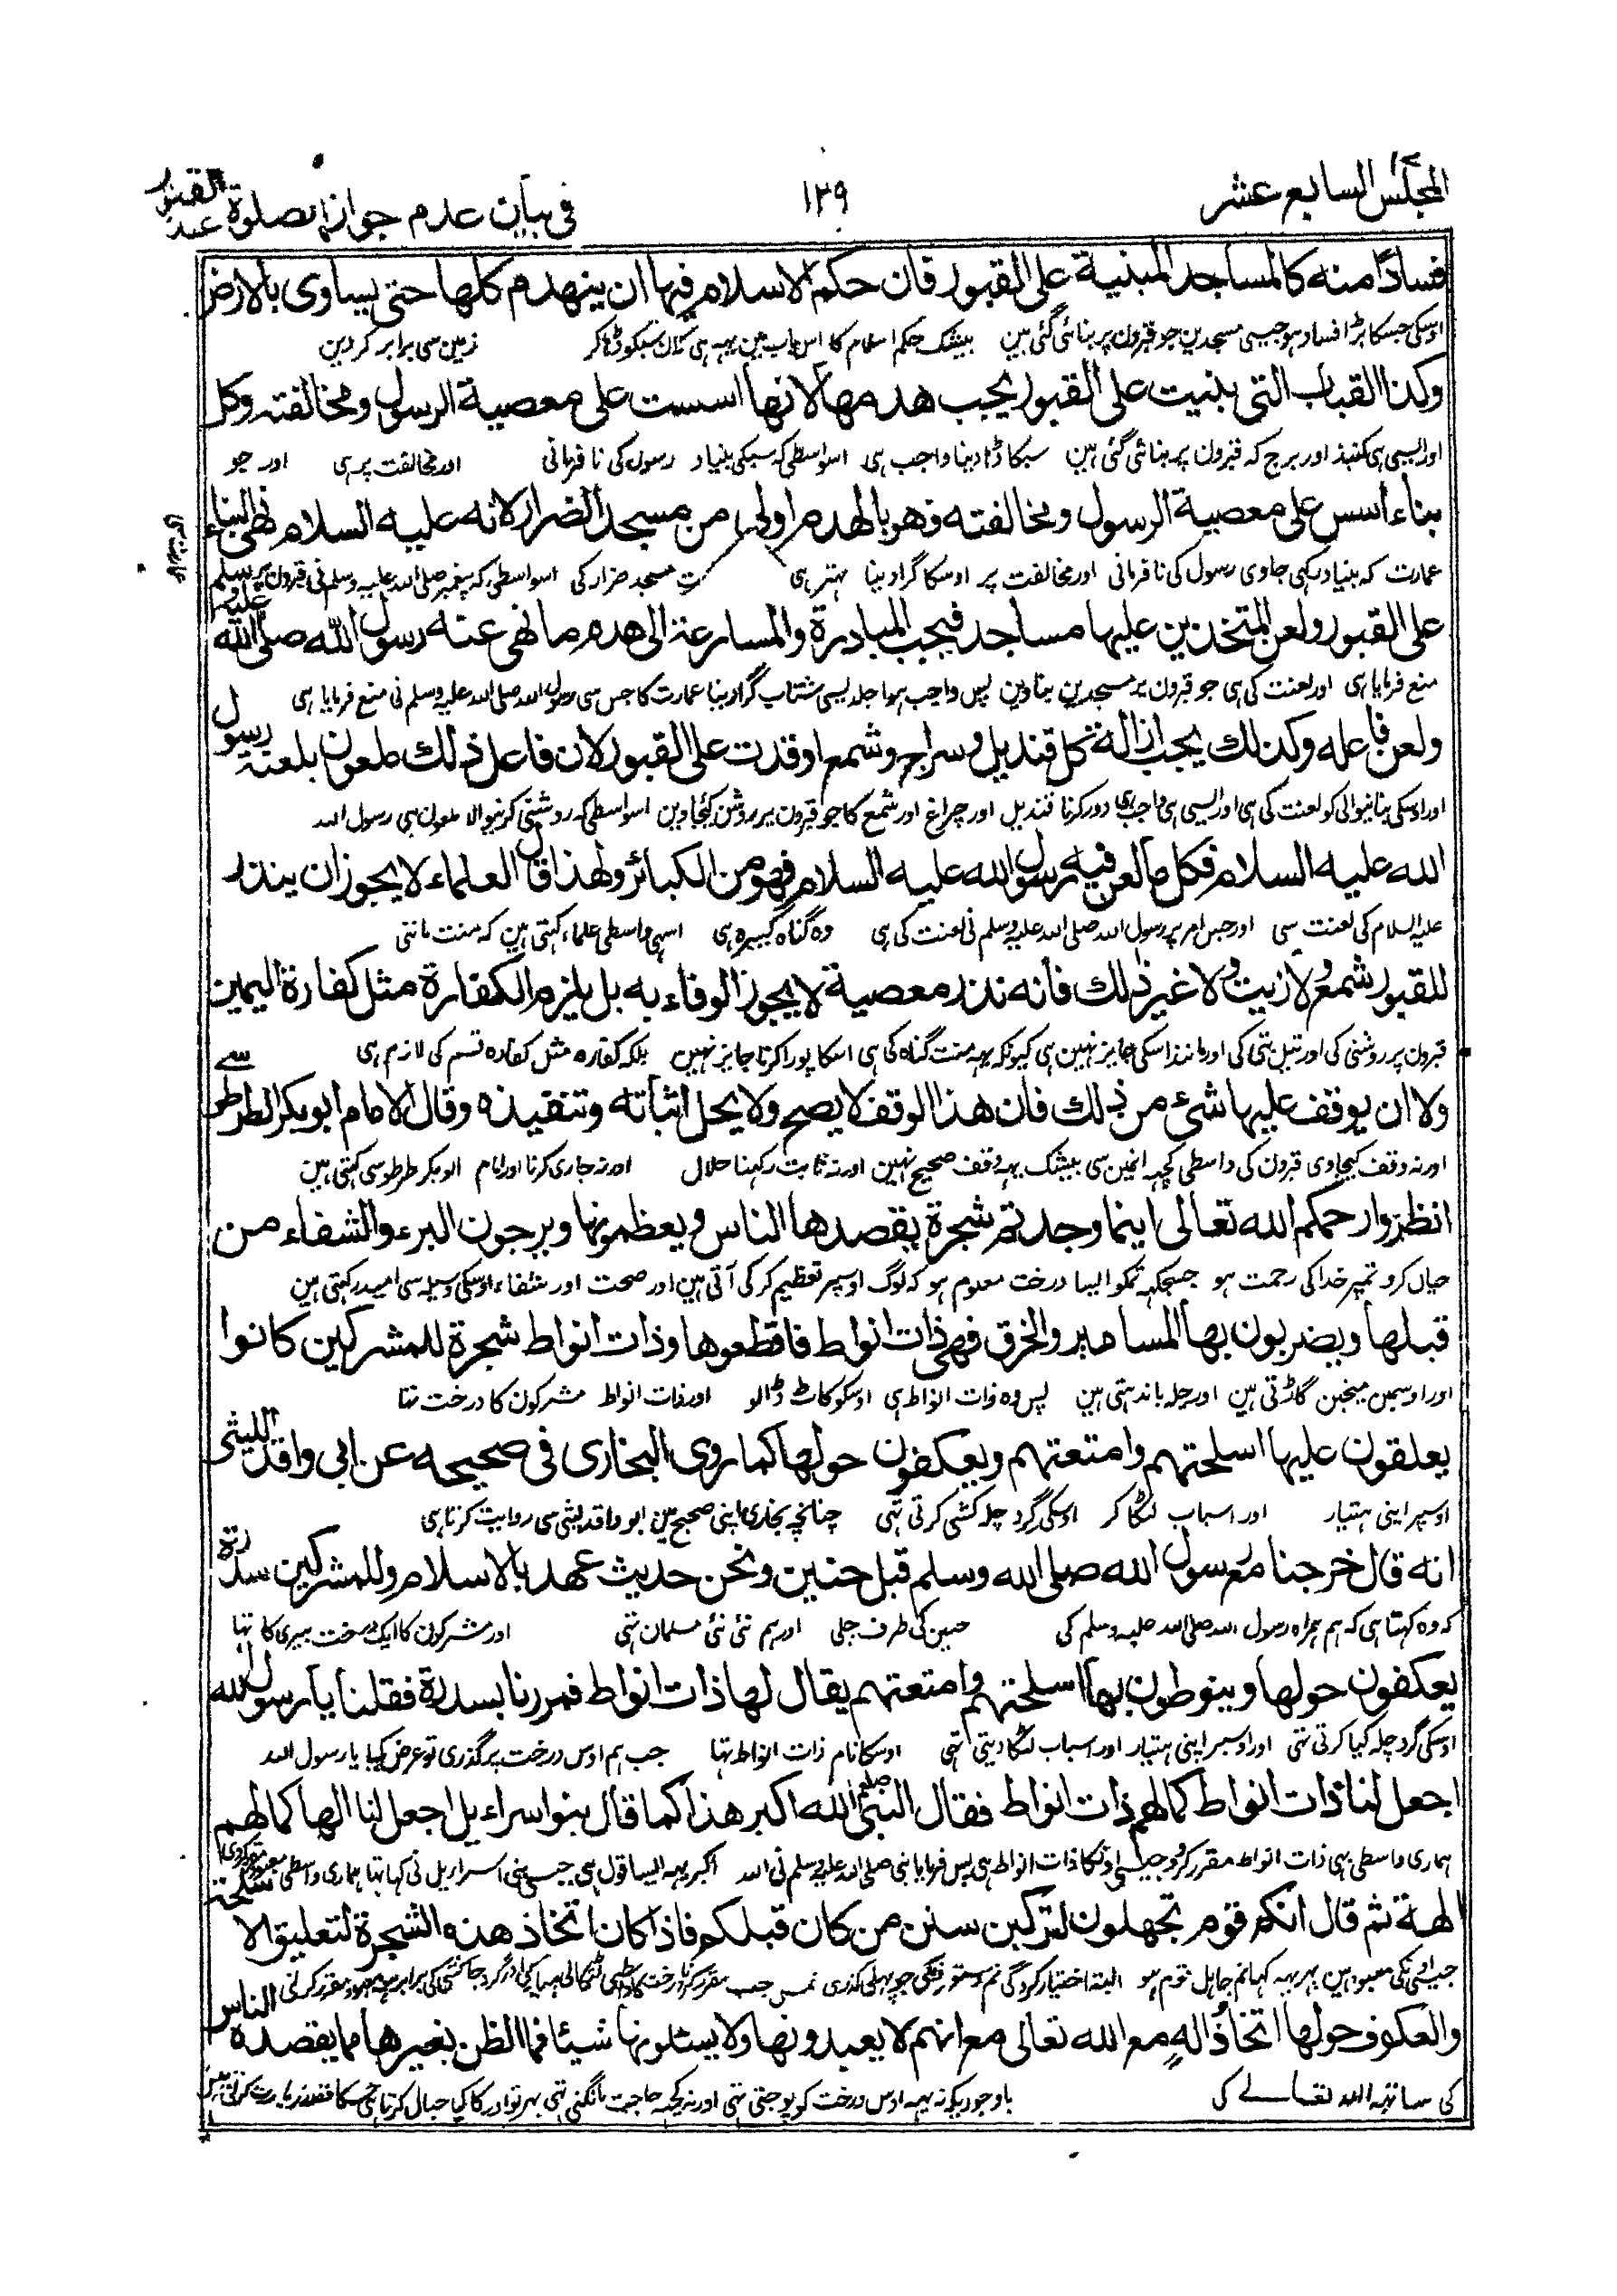 المجلس السابع عشر
١٢٩
فی بیان عدم جواز الصلوة عند القبور
فسادًا منه كالمساجد المبنية على القبور فان حكم الاسلام فيها ان ينهدم كلها حتى يساوى بالارض
اوسکی جسکا بڑا فساد ہو جیسی مسجدین جو قبرون پر بنائی گئی ہین بیشک حکم اسلام کا اس باب مین یہہ ہی کہ ان سبکو ڈہا کر زمین سی برابر کر دین
وكذا القباب التى بنيت على القبور يجب هدمها لانها اسست على معصية الرسول ومخالفته وكل
اور ایسی ہی گنبذ اور برج کہ قبرون پر بنائی گئی ہین سبکا ڈہا دینا واجب ہی اسواسطی کہ سبکی بنیاد رسول کی نافرمانی اور مخالفت پر ہی اور جو
بناء اسس على معصية الرسول ومخالفته فهو بالهدم اولى من مسجد الضرار لانه عليه السلام نهى البناء
عمارت کہ بنیاد رکہی جاوی رسول کی نافرمانی اور مخالفت پر اوسکا گرا دینا بہتر ہی مسجد ضرار کی اسواسطی کہ پیغمبر صلی اللہ علیہ وسلم نی قبرون پر
على القبور ولعن المتخذين عليها مساجد فيجب المبادرة والمسارعة الى هدم ما نهى عنه رسول الله صلى الله عليه وسلم
منع فرمایا ہی اور لعنت کی ہی جو قبرون پر مسجدین بناوین پس واجب ہوا جلد سی شتاب گرا دینا عمارت کا جس سی رسول اللہ صلی اللہ علیہ وسلم نی منع فرمایا ہی
ولعن فاعله وكذلك يجب ازالة كل قنديل وسراج وشمع اوقدت على القبور لان فاعل ذلك ملعون بلعنة رسول
اور اوسکی بنانیوالی کو لعنت کی ہی اور ایسی ہی واجب ہی دور کرنا قندیل اور چراغ اور شمع کا جو قبرون پر روشن کیجاوین اسواسطی کہ روشنی کرنیوالا ملعون ہی رسول اللہ
الله عليه السلام فكل ما لعن فيه رسول الله عليه السلام فهو من الكبائر ولهذا قال العلماء لا يجوز ان ينذر
علیہ السلام کی لعنت سی اور جس امر پر رسول اللہ صلی اللہ علیہ وسلم نی لعنت کی ہی وہ گناہ کبیرہ ہی اسہی واسطی علماء کہتی ہین کہ منت مانتی
للقبور شمع ولا زيت ولا غير ذلك فانه نذر معصية لا يجوز الوفاء به بل يلزم الكفارة مثل كفارة اليمين
قبرون پر روشنی کی اور تیل بتی کی اور مانند اسکی جایز نہین ہی کیونکہ یہہ منت گناہ کی ہی اسکا پورا کرنا جایز نہین بلکہ کفارہ مثل کفارہ قسم کی لازم ہی
ولا ان يوقف عليها شئ من ذلك فان هذا الوقف لا يصح ولا يحل اثباته وتنفيذه وقال الامام ابو بكر الطرطوسے
اور نہ وقف کیجاوی قبرون کی واسطی کچہہ انمین سی بیشک یہہ وقف صحیح نہین اور نہ ثابت رکہنا حلال اور نہ جاری کرنا اور امام ابو بکر طرطوسی کہتی ہین
انظروا رحمكم الله تعالى اينما وجدتم شجرة يقصدها الناس ويعظمونها ويرجون البرء والشفاء من
خیال کرو تمپر خدا کی رحمت ہو جسجگہ تمکو ایسا درخت معلوم ہو کہ لوگ اوسپر تعظیم کرکی آتی ہین اور صحت اور شفاء اوسکی وسیلہ سی امید رکہتی ہین
قبلها ويضربون بها المسامير والخرق فهى ذات انواط فاقطعوها وذات انواط شجرة للمشركين كانوا
اور اوسمین میخین گاڑتی ہین اور چلہ باندہتی ہین پس وہ ذات انواط ہی اوسکو کاٹ ڈالو اور ذات انواط مشرکون کا درخت تہا
يعلقون عليها اسلحتهم وامتعتهم ويعكفون حولها كما روى البخارى فى صحيحه عن ابى واقد الليثى
اوسپر اپنی ہتیار اور اسباب لٹکا کر اوسکی گرد چلہ کشی کرتی تہی چنانچہ بخاری اپنی صحیح مین ابو واقد لیثی سی روایت کرتا ہی
انه قال خرجنا مع رسول الله صلى الله وسلم قبل حنين ونحن حديث عهد بالاسلام وللمشركين سدرة
کہ وہ کہتا ہی کہ ہم ہمراہ رسول اللہ صلی اللہ علیہ وسلم کی حنین کی طرف چلی اور ہم نئی نئی مسلمان تہی اور مشرکون کا ایک درخت بیری کا تہا
يعكفون حولها وينوطون بها اسلحتهم وامتعتهم يقال لها ذات انواط فمررنا بسدرة فقلنا يا رسول الله
اوسکی گرد چلہ کیا کرتی تہی اور اوسپر اپنی ہتیار اور اسباب لٹکا دیتی تہی اوسکا نام ذات انواط تہا جب ہم اوس درخت پر گذری تو عرض کیا یا رسول اللہ
اجعل لنا ذات انواط كما لهم ذات انواط فقال النبى صلعم الله اكبر هذا كما قال بنو اسراءيل اجعل لنا الها كما لهم
ہماری واسطی بہی ذات انواط مقرر کرو جیسی اونکا ذات انواط ہی پس فرمایا نبی صلی اللہ علیہ وسلم نی اللہ اکبر یہہ ایسا قول ہی جیسی بنی اسرائیل نی کہا تہا ہماری واسطی معبود مقرر کردی
الهة ثم قال انكم قوم تجهلون لتركبن سنن من كان قبلكم فاذا كان اتخاذ هذه الشجرة لتعليق الاسلحة
جیسی اونکی معبود ہین پہر یہہ کہا تم جاہل قوم ہو البتہ اختیار کروگی تم جو پہلی گذری
والعكوف حولها اتخاذ اله مع الله تعالى مع انهم لا يعبدونها ولا يسئلونها شيئا فما الظن بغيرها مما يقصده الناس
کی ساتہہ اللہ تعالے کی باوجودیکہ نہ یہہ اوس درخت کو پوجتی تہی اور نہ کچہہ حاجت مانگتی تہی پہر تو اور کا کیا خیال کرتا ہی جسکا قصد